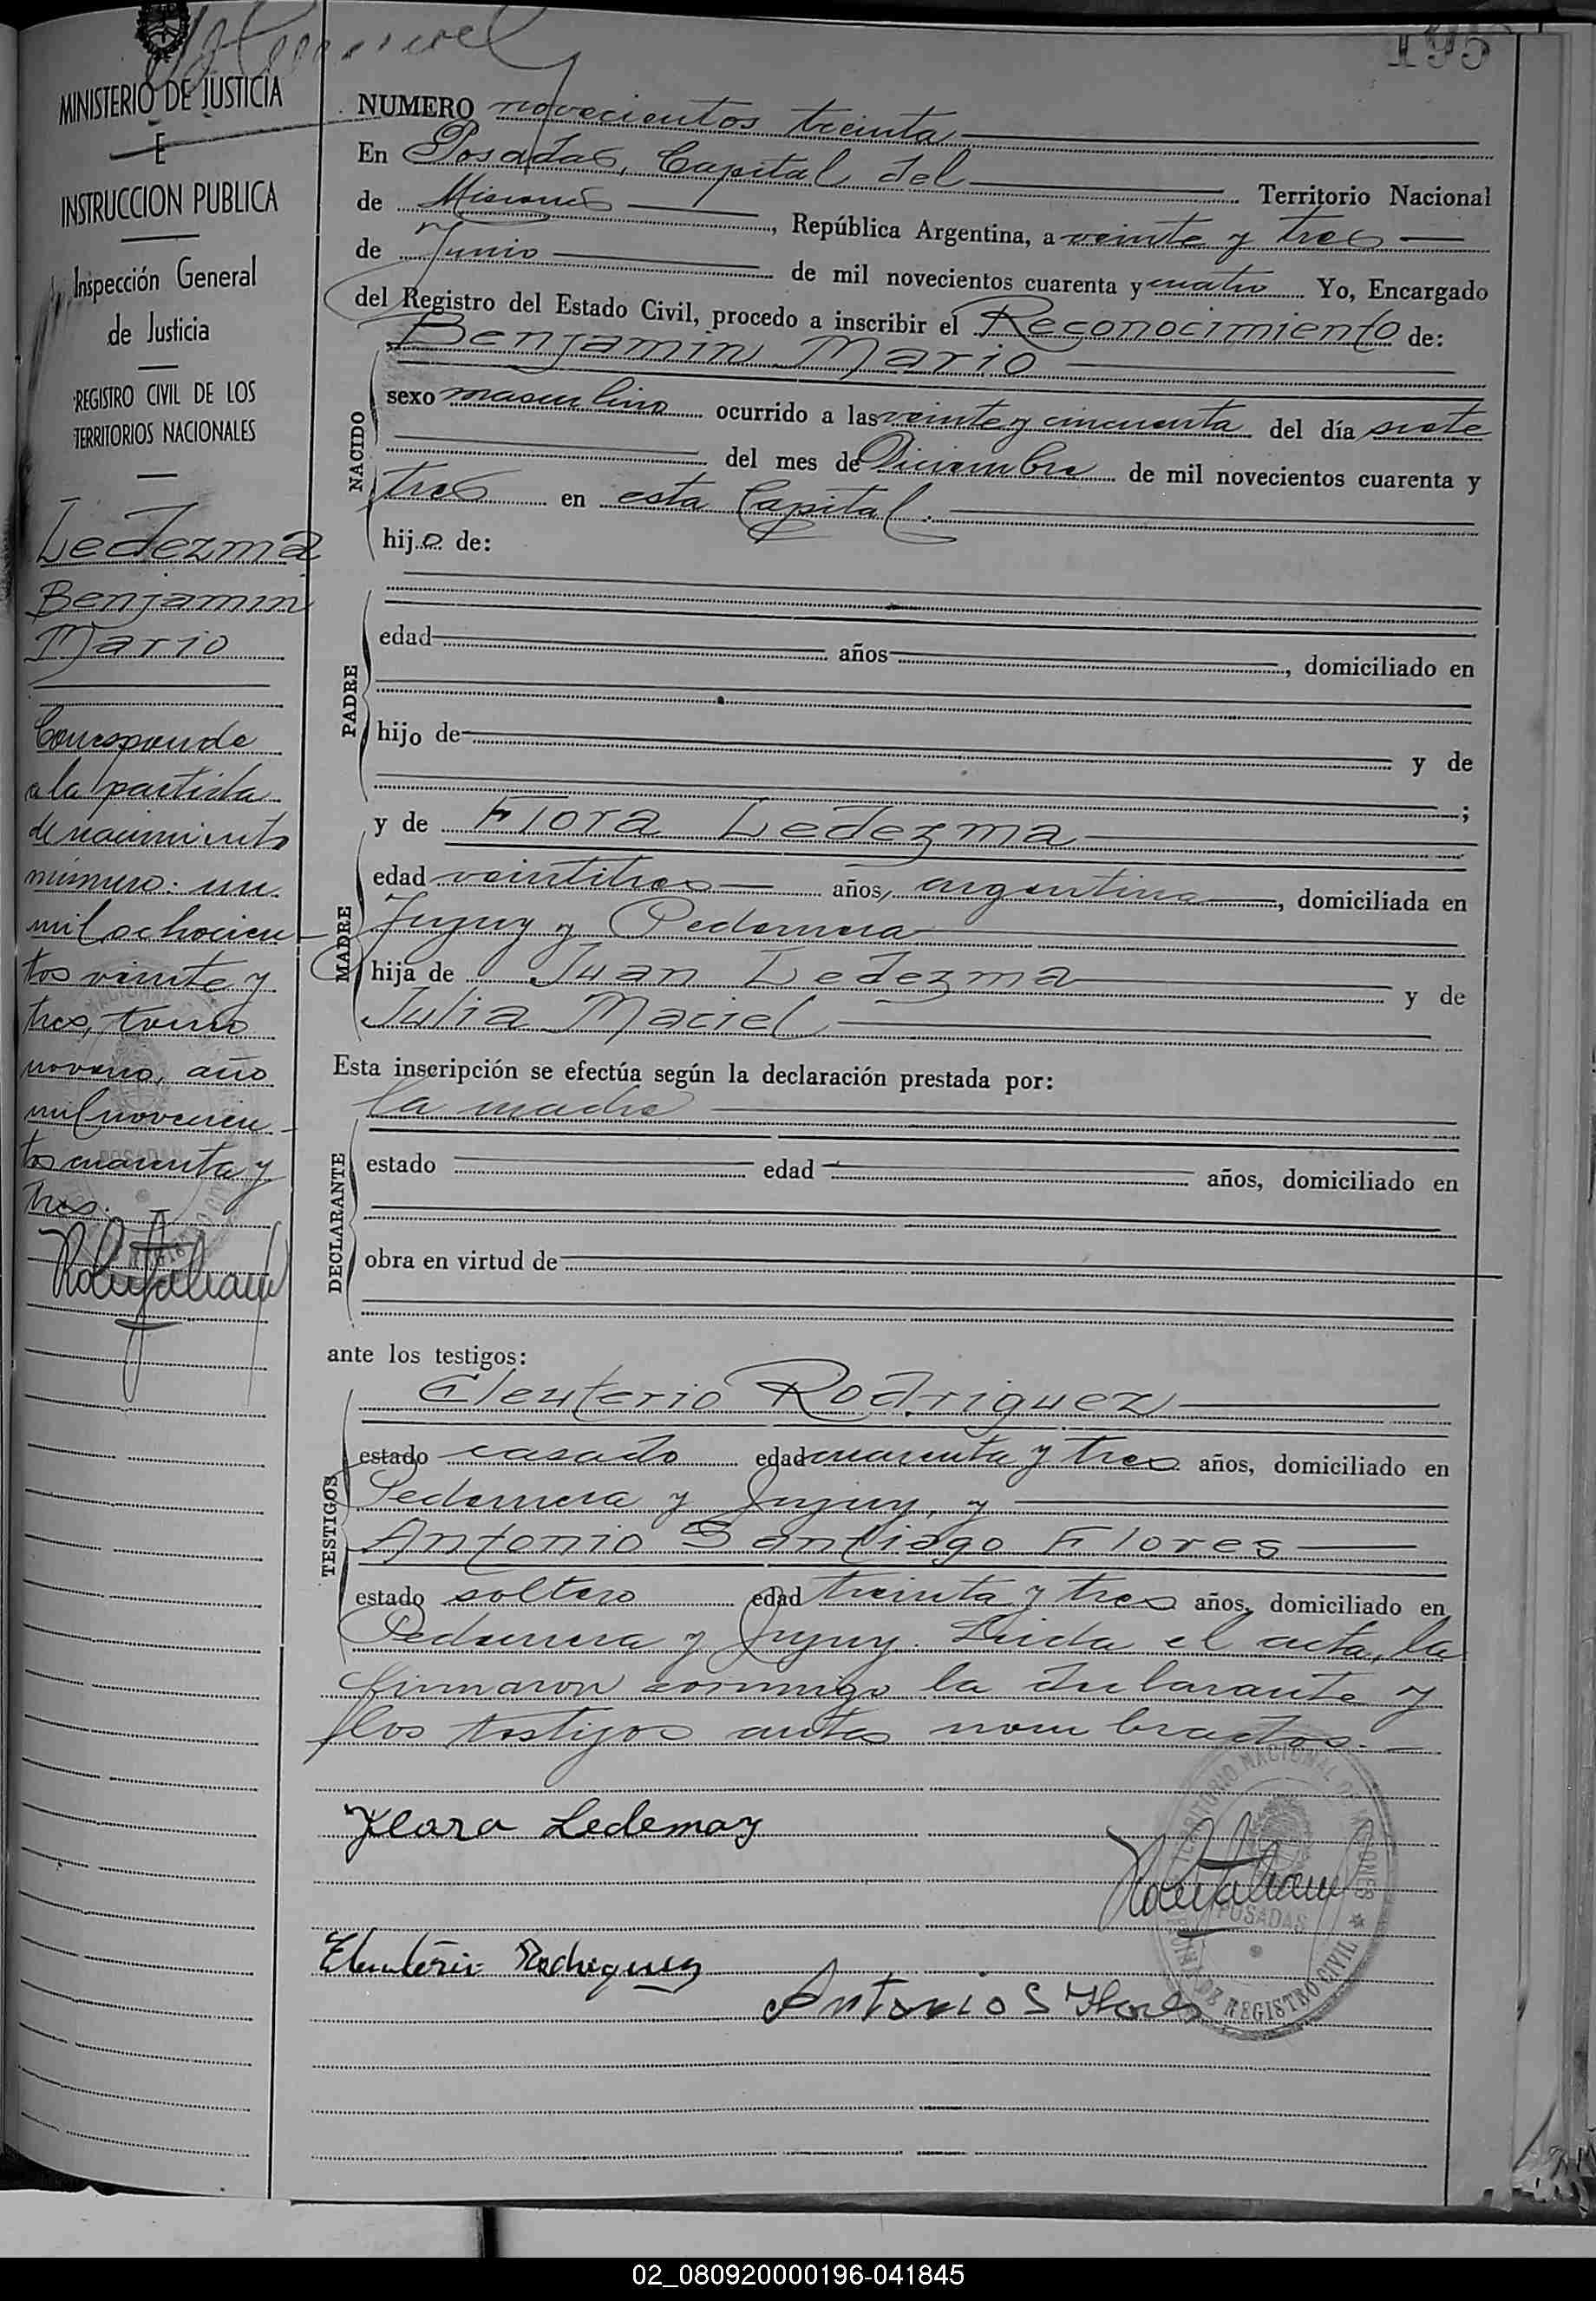 195
MINISTERIO DE JUSTICIA
E
INSTRUCCION PUBLICA
Inspección General
de Justicia
REGISTRO CIVIL DE LOS
TERRITORIOS NACIONALES
Ledezma
Benjamin
Mario
Corresponde
a la partida
de nacimiento
número: un
mil ochocien-
tos veinte y
tres, tomo
noveno, año
mil novecien-
tos cuarenta y
tres.
NUMERO novecientos treinta
En Posadas, Capital del Territorio Nacional
de Misiones, República Argentina, a veinte y tres
de Junio de mil novecientos cuarenta y cuatro Yo, Encargado
del Registro del Estado Civil, procedo a inscribir el Reconocimiento de:
Benjamin Mario
NACIDO
sexo masculino ocurrido a las veinte y cincuenta del día siete
del mes de Diciembre de mil novecientos cuarenta y
tres en esta Capital.
hijo de:
PADRE
edad años, domiciliado en
hijo de y de
;
y de Flora Ledezma
MADRE
edad veintitres años, argentina, domiciliada en
Jujuy y Pedernera
hija de Juan Ledezma y de
Julia Maciel
Esta inscripción se efectúa según la declaración prestada por:
la madre
DECLARANTE
estado edad años, domiciliado en
obra en virtud de
ante los testigos:
TESTIGOS
Eleuterio Rodriguez
estado casado edad cuarenta y tres años, domiciliado en
Pedernera y Jujuy, y
Antonio Santiago Flores
estado soltero edad treinta y tres años, domiciliado en
Pedernera y Jujuy. Leida el acta, la
firmaron conmigo la declarante y
los testigos antes nombrados.-
Flora Ledemaz
Eleuterio Rodriguez
Antonio S Flores
TERRITORIO NACIONAL DE MISIONES
POSADAS
REGISTRO CIVIL
02_080920000196-041845